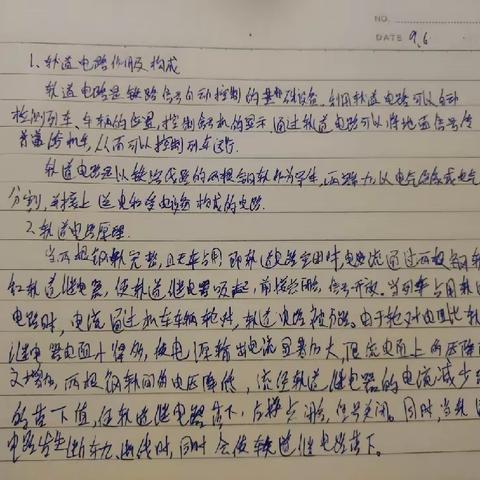 NO.
DATE 9.6
1、轨道电路作用及构成
轨道电路是铁路信号自动控制的基础设备。利用轨道电路可以自动
检测列车、车辆的位置,控制信号机的显示,通过轨道电路可以将地面信号传
递给机车,从而可以控制列车运行.
轨道电路是以铁路线路的两根钢轨作为导体,两端加以电气绝缘或电气
分割,并接上送电和受电设备构成的电路.
2、轨道电路原理.
当两根钢轨完整,且无车占用,即轨道电路空闲时,电流通过两根钢轨
和轨道继电器,使轨道继电器吸起,前接点闭合,信号开放。当列车占用轨道
电路时,电流通过机车车辆轮对,轨道电路被分路。由于轮对电阻比轨道
继电器电阻小得多,使电源输出电流显著加大,限流电阻上的压降
又增加,两根钢轨间的电压降低,流经轨道继电器的电流减少到
的落下值,使轨道继电器落下,后接点闭合,信号关闭。同时,当轨道
电路发生断轨、断线时,同时会使轨道继电器落下。